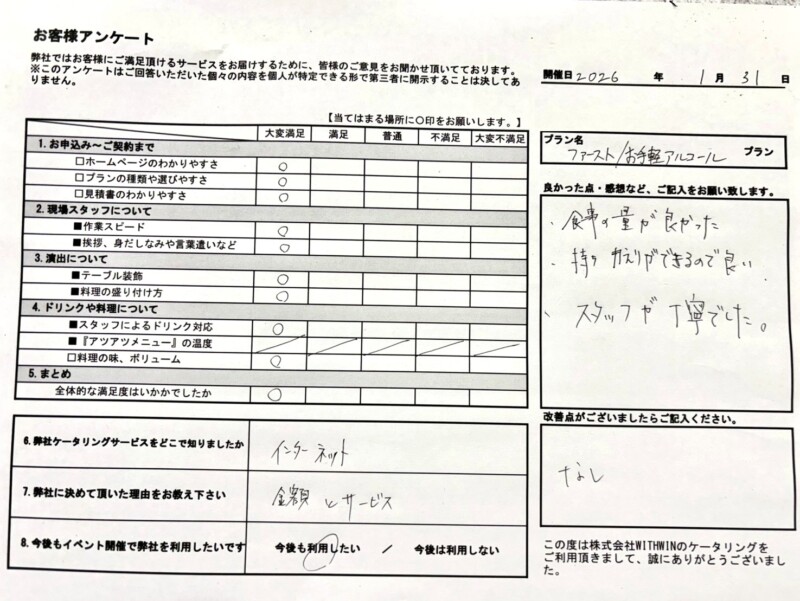 お客様アンケート
弊社ではお客様にご満足頂けるサービスをお届けするために、皆様のご意見をお聞かせ頂いてております。
※このアンケートはご回答いただいた個々の内容を個人が特定できる形で第三者に開示することは決してあ
りません。
開催日 2026 年 1 月 31 日
【当てはまる場所に〇印をお願いします。】
大変満足 満足 普通 不満足 大変不満足
1. お申込み～ご契約まで
□ホームページのわかりやすさ ○
□プランの種類や選びやすさ ○
□見積書のわかりやすさ ○
2. 現場スタッフについて
■作業スピード ○
■挨拶、身だしなみや言葉遣いなど ○
3. 演出について
■テーブル装飾 ○
■料理の盛り付け方 ○
4. ドリンクや料理について
■スタッフによるドリンク対応 ○
■『アツアツメニュー』の温度
□料理の味、ボリューム ○
5. まとめ
全体的な満足度はいかかでしたか ○
6. 弊社ケータリングサービスをどこで知りましたか インターネット
7. 弊社に決めて頂いた理由をお教え下さい 金額とサービス
8. 今後もイベント開催で弊社を利用したいです 今後も利用したい / 今後は利用しない
プラン名
ファースト/お手軽アルコール プラン
良かった点・感想など、ご記入をお願い致します。
・食事の量が良かった
・持ちかえりができるので良い
・スタッフが丁寧でした。
改善点がございましたらご記入ください。
なし
この度は株式会社WITHWINのケータリングを
ご利用頂きまして、誠にありがとうございまし
た。